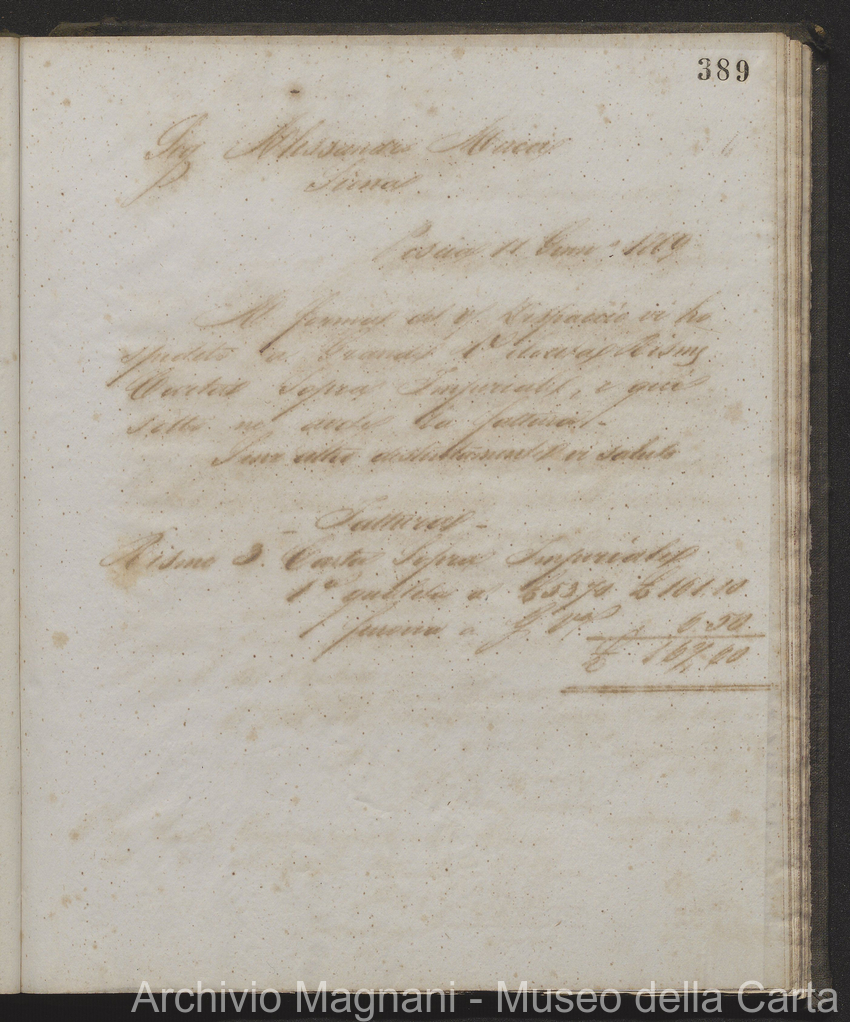 389
Sig Alessandro Mucci
Siena
Pescia 11 Genn° 1869
A forma del vs. Dispaccio vi ho
spedito a Grande Risme
Carta Sopra Imperiale, e qui
sotto ne avete la fattura.
Senz altro distintamente vi saluto
- Fattura -
Risme 3. Carta Sopra Imperiale
1ª qualità a £ 53,70 £ 161.10
6.50
£ 167.60
Archivio Magnani - Museo della Carta